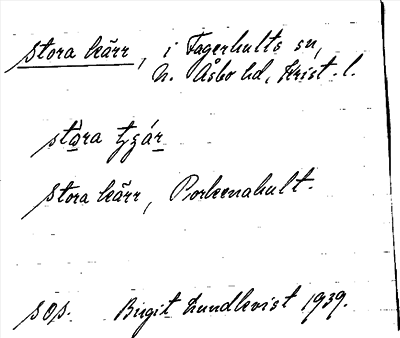 Stora kärr, i Fagerhults sn,
N. Åsbo hd, Krist. l.
stora tȥár
Stora kärr, Porkenahult.
sos. Birgit Lundkvist 1939.